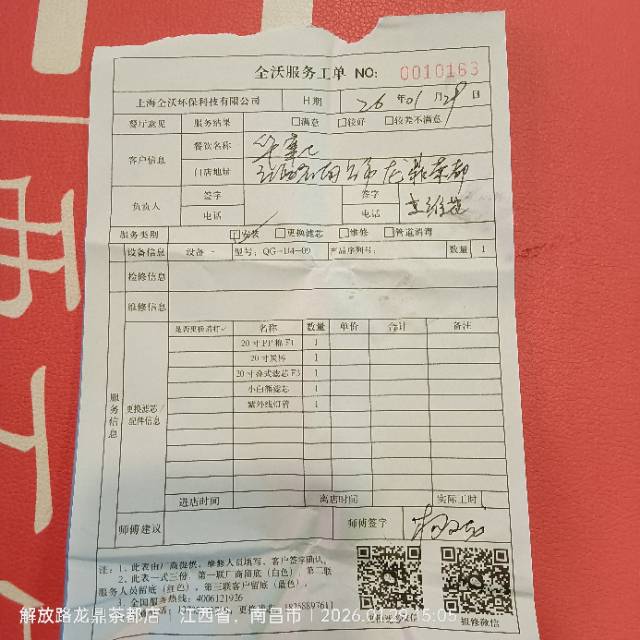 全沃服务工单 NO: 0010163
上海全沃环保科技有限公司 日期 26 年 01 月 29 日
餐厅意见 服务结果 □满意 □较好 □较差不满意
客户信息 餐饮名称
门店地址 龙鼎茶都
负责人 签字 签字
电话 电话
服务类别 安装 □更换滤芯 □维修 □管道消毒
设备信息 设备一 型号: QG-U4-09 产品序列号: 数量 1
检修信息
维修信息
服务信息 更换滤芯/配件信息
是否更换请打✓ 名称 数量 单价 合计 备注
20寸PP棉F1 1
20寸炭棒 1
20寸叠式滤芯F3 1
小白熊滤芯 1
紫外线灯管 1
进店时间 离店时间 实际工时
师傅建议 师傅签字
注: 1、此表由厂商提供、维修人员填写、客户签字确认。
2、此表一式三份、第一联厂商留底(白色)、第二联
服务人员留底(红色)、第三联客户留底(蓝色)。
全国服务热线: 4006121926
维修微信
解放路龙鼎茶都店 | 江西省, 南昌市 | 2026.01.29 15:05